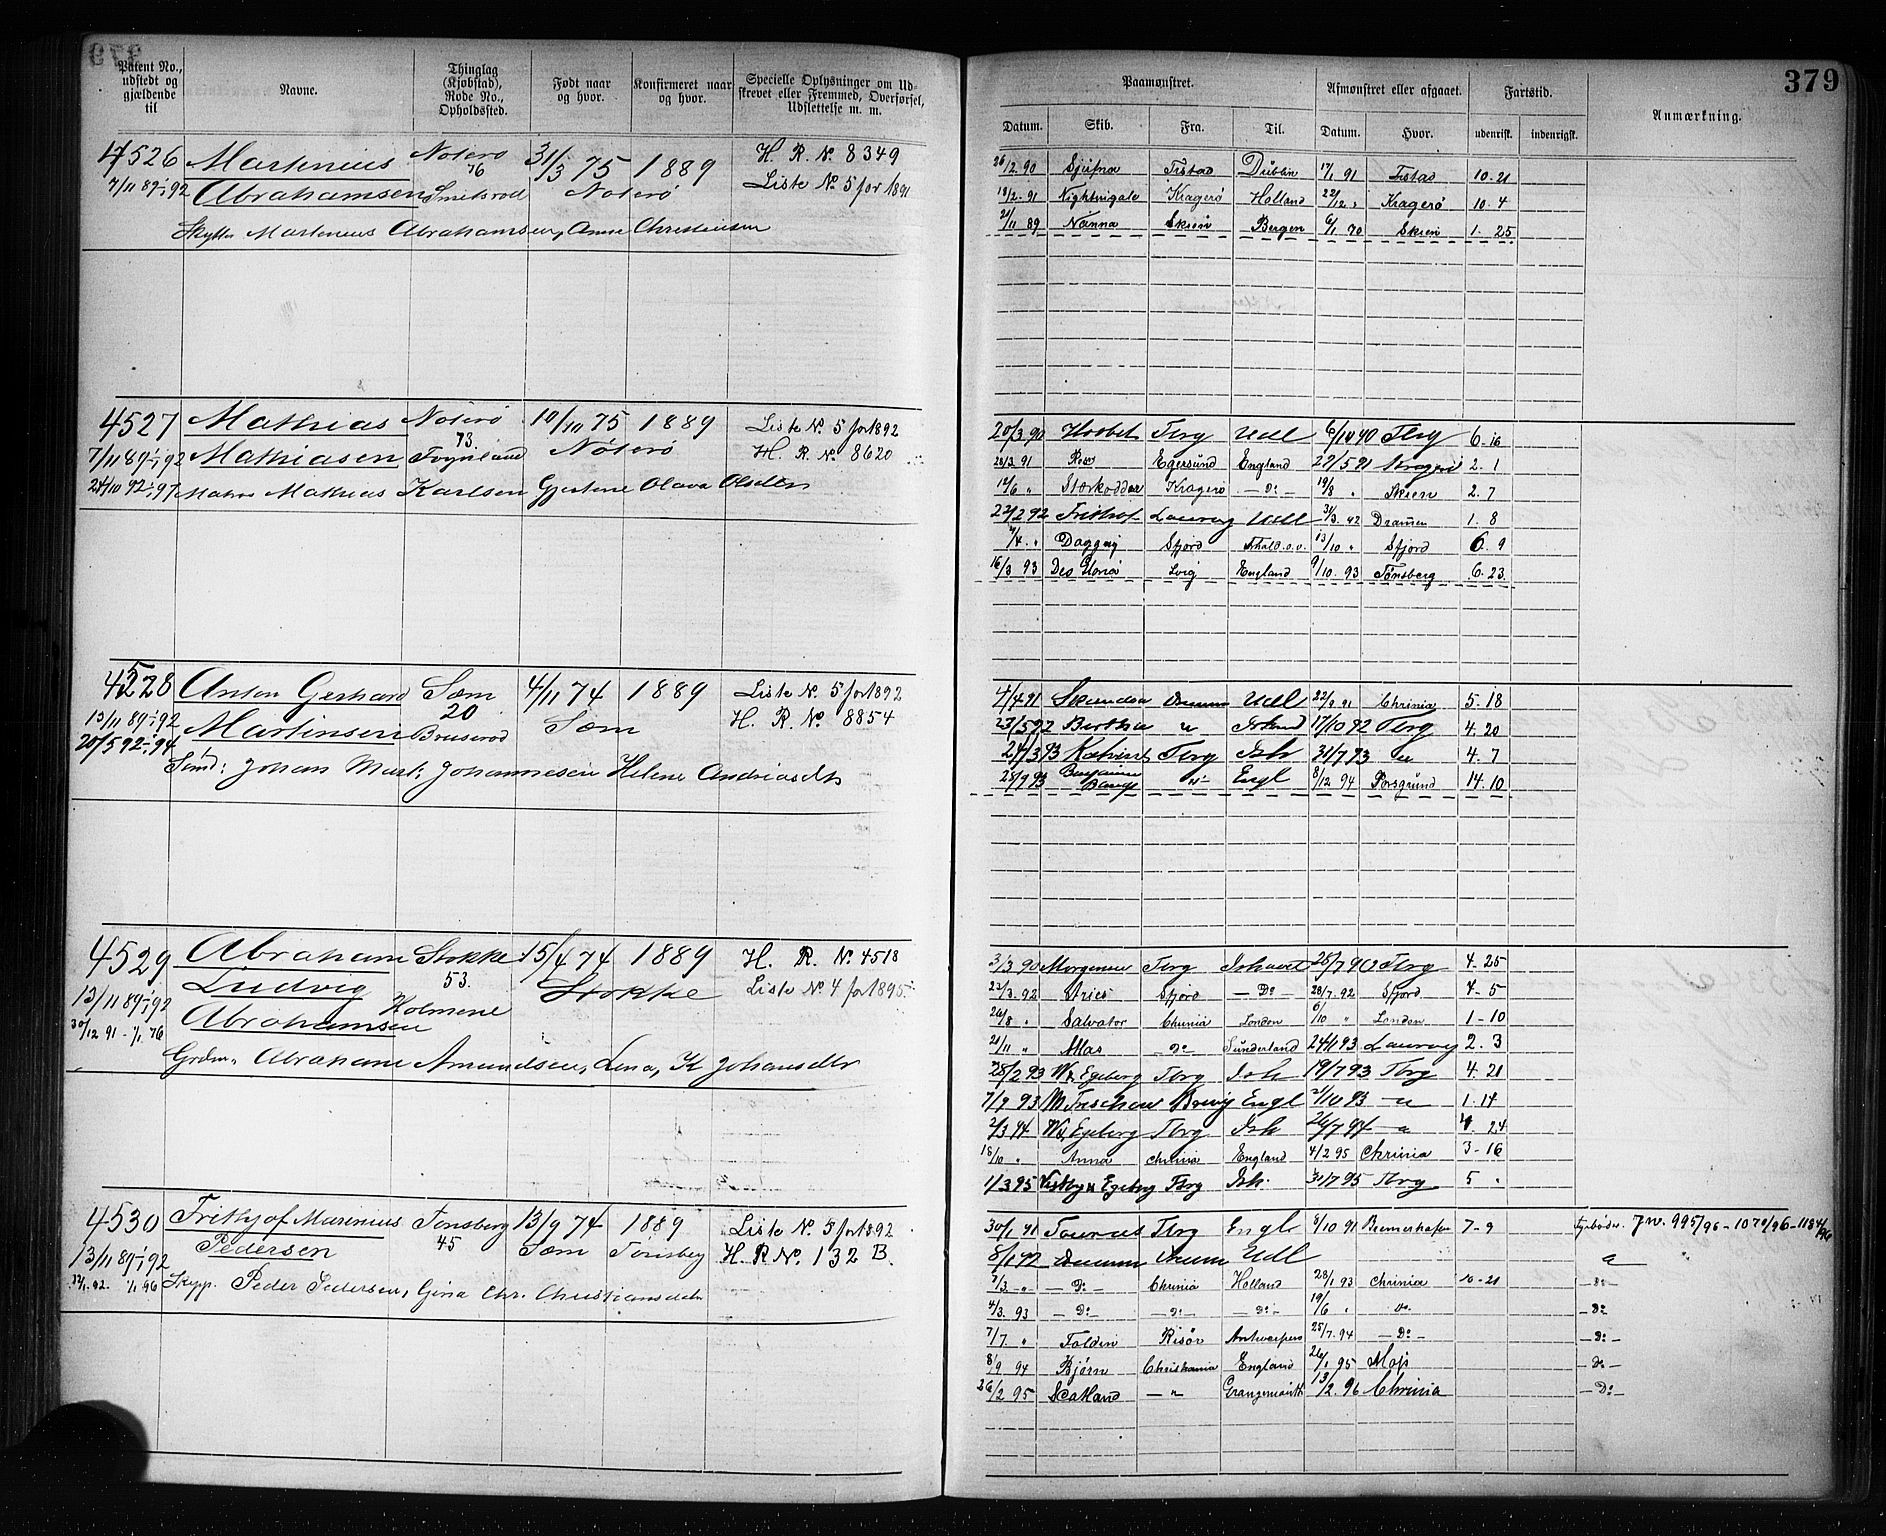 379
Patent No., udstedt og gjældende til
Navne.
Thinglag (Kjøbstad), Rode No., Opholdssted.
Født naar og hvor.
Konfirmeret naar og hvor.
Specielle Oplysninger om Udskrevet eller Fremmed, Overførsel, Udslettelse m. m.
Paamønstret.
Afmønstret eller afgaaet.
Fartstid.
Anmærkning.
Datum. Skib. Fra. Til. Datum. Hvor. udenrikst. indenrigst.
4526 Martenius Nøterø 31/3 75 1889 H. R. No. 8349
7/11 89-1/1 92 Abrahamsen 76 Smidsrød Nøterø Liste No. 5 for 1891
Martenius Abrahamsen, Anne Christensen
26/2. 90 Sjøfna Frstad Dublin 17/1 91 Frstad 10. 21
18/2. 91 Nightingale Kragerø Holland 22/12 " Kragerø 10. 4
21/11 89 Nanna Skien Bergen 6/1 70 Skien 1. 25
4527 Mathias Nøterø 10/10 75 1889 Liste No. 5 for 1892
7/11 89-1/1 92 Mathiasen 73. Nøterø H. R. No. 8620
24/10 92-1/1 97 Mathias Karlsen Gjertine Olava Olsdtr
20/3 90 Haabet Tbrg Udl 6/10 90 Tbrg 6. 16
28/3. 91 Egersund England 27/5 91 2. 1
12/6 " Stærkodder Kragerø — Do — 19/8 " Skien 2. 7
22/2 92 Frithof Laurvig Udl 31/3. 92 Dramen 1. 8
7/4. " Sfjord 13/10 " Sfjord 6. 9
16/3 93 Deo Gloria Lvig England 9/10. 93 Tønsberg 6. 23.
4528 Anton Gerhard Sæm 4/11 74 1889 Liste No. 5 for 1892
13/11 89-1/1 92 Martinsen 20 Sæm H. R. No. 8854
20/5 92-1/1 94 Bruserød
Johan Mart: Johannesen Helene Andreasdtr
4/4 91 Udl 22/9 91 Chrinia 5. 18
23/5 92 Bertha " 17/10 92 Tbrg 4. 20
24/3 93 Tbrg Ish 31/7 93 " 4. 7
25/9 93 Benjamin Bangs " Engl 8/12 94 Porsgrund 14. 10
4529 Abraham Stokke 15/4 74 1889 H. R. No. 4518
13/11 89-1/1 92 Ludvig 53. Stokke Liste No. 4 for 1895.
30/12 91 - 1/1 76 Abrahamsen Holmene
Abraham Amundsen, Lena, K Johansdtr
3/3 90 Morgenen Tbrg Ishavet 25/7 90 Tbrg 4. 25
23/3. 92 Aries Sfjord — Do — 28/7. 92 Sfjord 4 - 5
26/8 " Salvator Chrinia London 6/10 " London 1 - 10
21/11 " Atlas — Do — Sunderland 24/1 93 Laurvig 2. 3
28/2 93 W. Egeberg Tbrg Ish 19/7 93 Tbrg 4. 21
7/9 93 M Treschow Brevig Engl 21/10 93 — " 1. 14
2/3 94 W. Egeberg Tbrg Ish 26/7 94 — " 4. 24
18/10 " Anna Chrinia England 4/2 95 Chrinia 3 - 16
1/3 95 Egeberg Tbrg Ish. 31/7 95 Tbrg 5 "
4530 Frithjof Marenius Tønsberg 13/9 74 1889 Liste No. 5 for 1892
13/11 89-1/1 92 Pedersen 45 Sæm Tønsberg H. R. No. 132 B.
12/1. 92. 1/1 96 Skipp. Peder Pedersen, Gina Chr. Christiansdatr
30/1. 91 Taurus Tbrg Engl 8/10 91 Bremerhafen 7 - 9 J. No. 995/96 - 1070/96 - 1184/96
8/1 92 Drammen Udl
7/3. - " — Do — Chrinia Holland 28/1 93 Chrinia 10 - 21 — Do —
4/3. 93 — Do — — Do — — Do — 19/6 " Do — Do
7/7. " Folden Risør Antwerpen 25/7. 94 — Do — — Do —
8/9 94 Bjørn Christiania England 26/1 95 Moss — Do —
26/2 95 Scotland — " — Grangemouth 13/2. 96 Chrinia — Do —